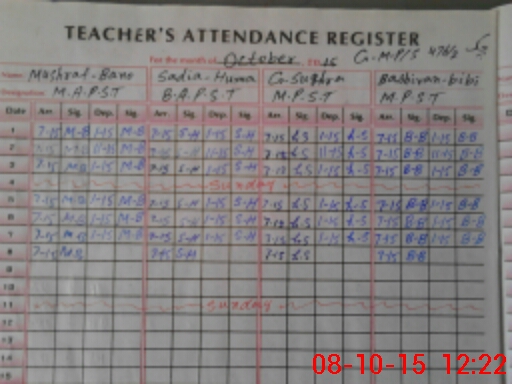 TEACHER'S ATTENDANCE REGISTER
For the month of October 2015 G.M.P/S 476/2
Name Mushraf-Bano Sadia-Huma G-Sughra Bashiran-bibi
Designation M.A.P.S.T B.A.P.S.T M.P.S.T M.P.S.T
Date Arr. Sig. Dep. Sig. Arr. Sig. Dep. Sig. Arr. Sig. Dep. Sig. Arr. Sig. Dep. Sig.
1 7-15 M-B 1-15 M-B 7-15 S-H 1-15 S-H 7-15 G-S 1-15 G-S 7-15 B-B 1-15 B-B
2 7-15 M-B 11-15 M-B 7-15 S-H 11-15 S-H 7-15 G-S 11-15 G-S 7-15 B-B 11-15 B-B
3 7-15 M-B 1-15 M-B 7-15 S-H 1-15 S-H 7-15 G-S 1-15 G-S 7-15 B-B 1-15 B-B
4 Sunday
5 7-15 M-B 1-15 M-B 7-15 S-H 1-15 S-H 7-15 G-S 1-15 G-S 7-15 B-B 1-15 B-B
6 7-15 M-B 1-15 M-B 7-15 S-H 1-15 S-H 7-15 G-S 1-15 G-S 7-15 B-B 1-15 B-B
7 7-15 M-B 1-15 M-B 7-15 S-H 1-15 S-H 7-15 G-S 1-15 G-S 7-15 B-B 1-15 B-B
8 7-15 M-B 7-15 S-H 7-15 G-S 7-15 B-B
9
10
11 Sunday
12
13
14
15
08-10-15 12:22